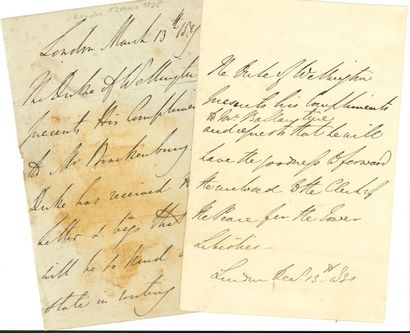 London March 13th
The Duke of Wellington
presents His Compliments
to Mr. Brackenbury
Duke has received
letter & begs that
will be so kind
state in writing
The Duke of Wellington
presents his Compliments
to
and requests that he will
have the goodness to forward
the enclosed to the Clerk of
the Peace for the Tower
Liberties
London 13th